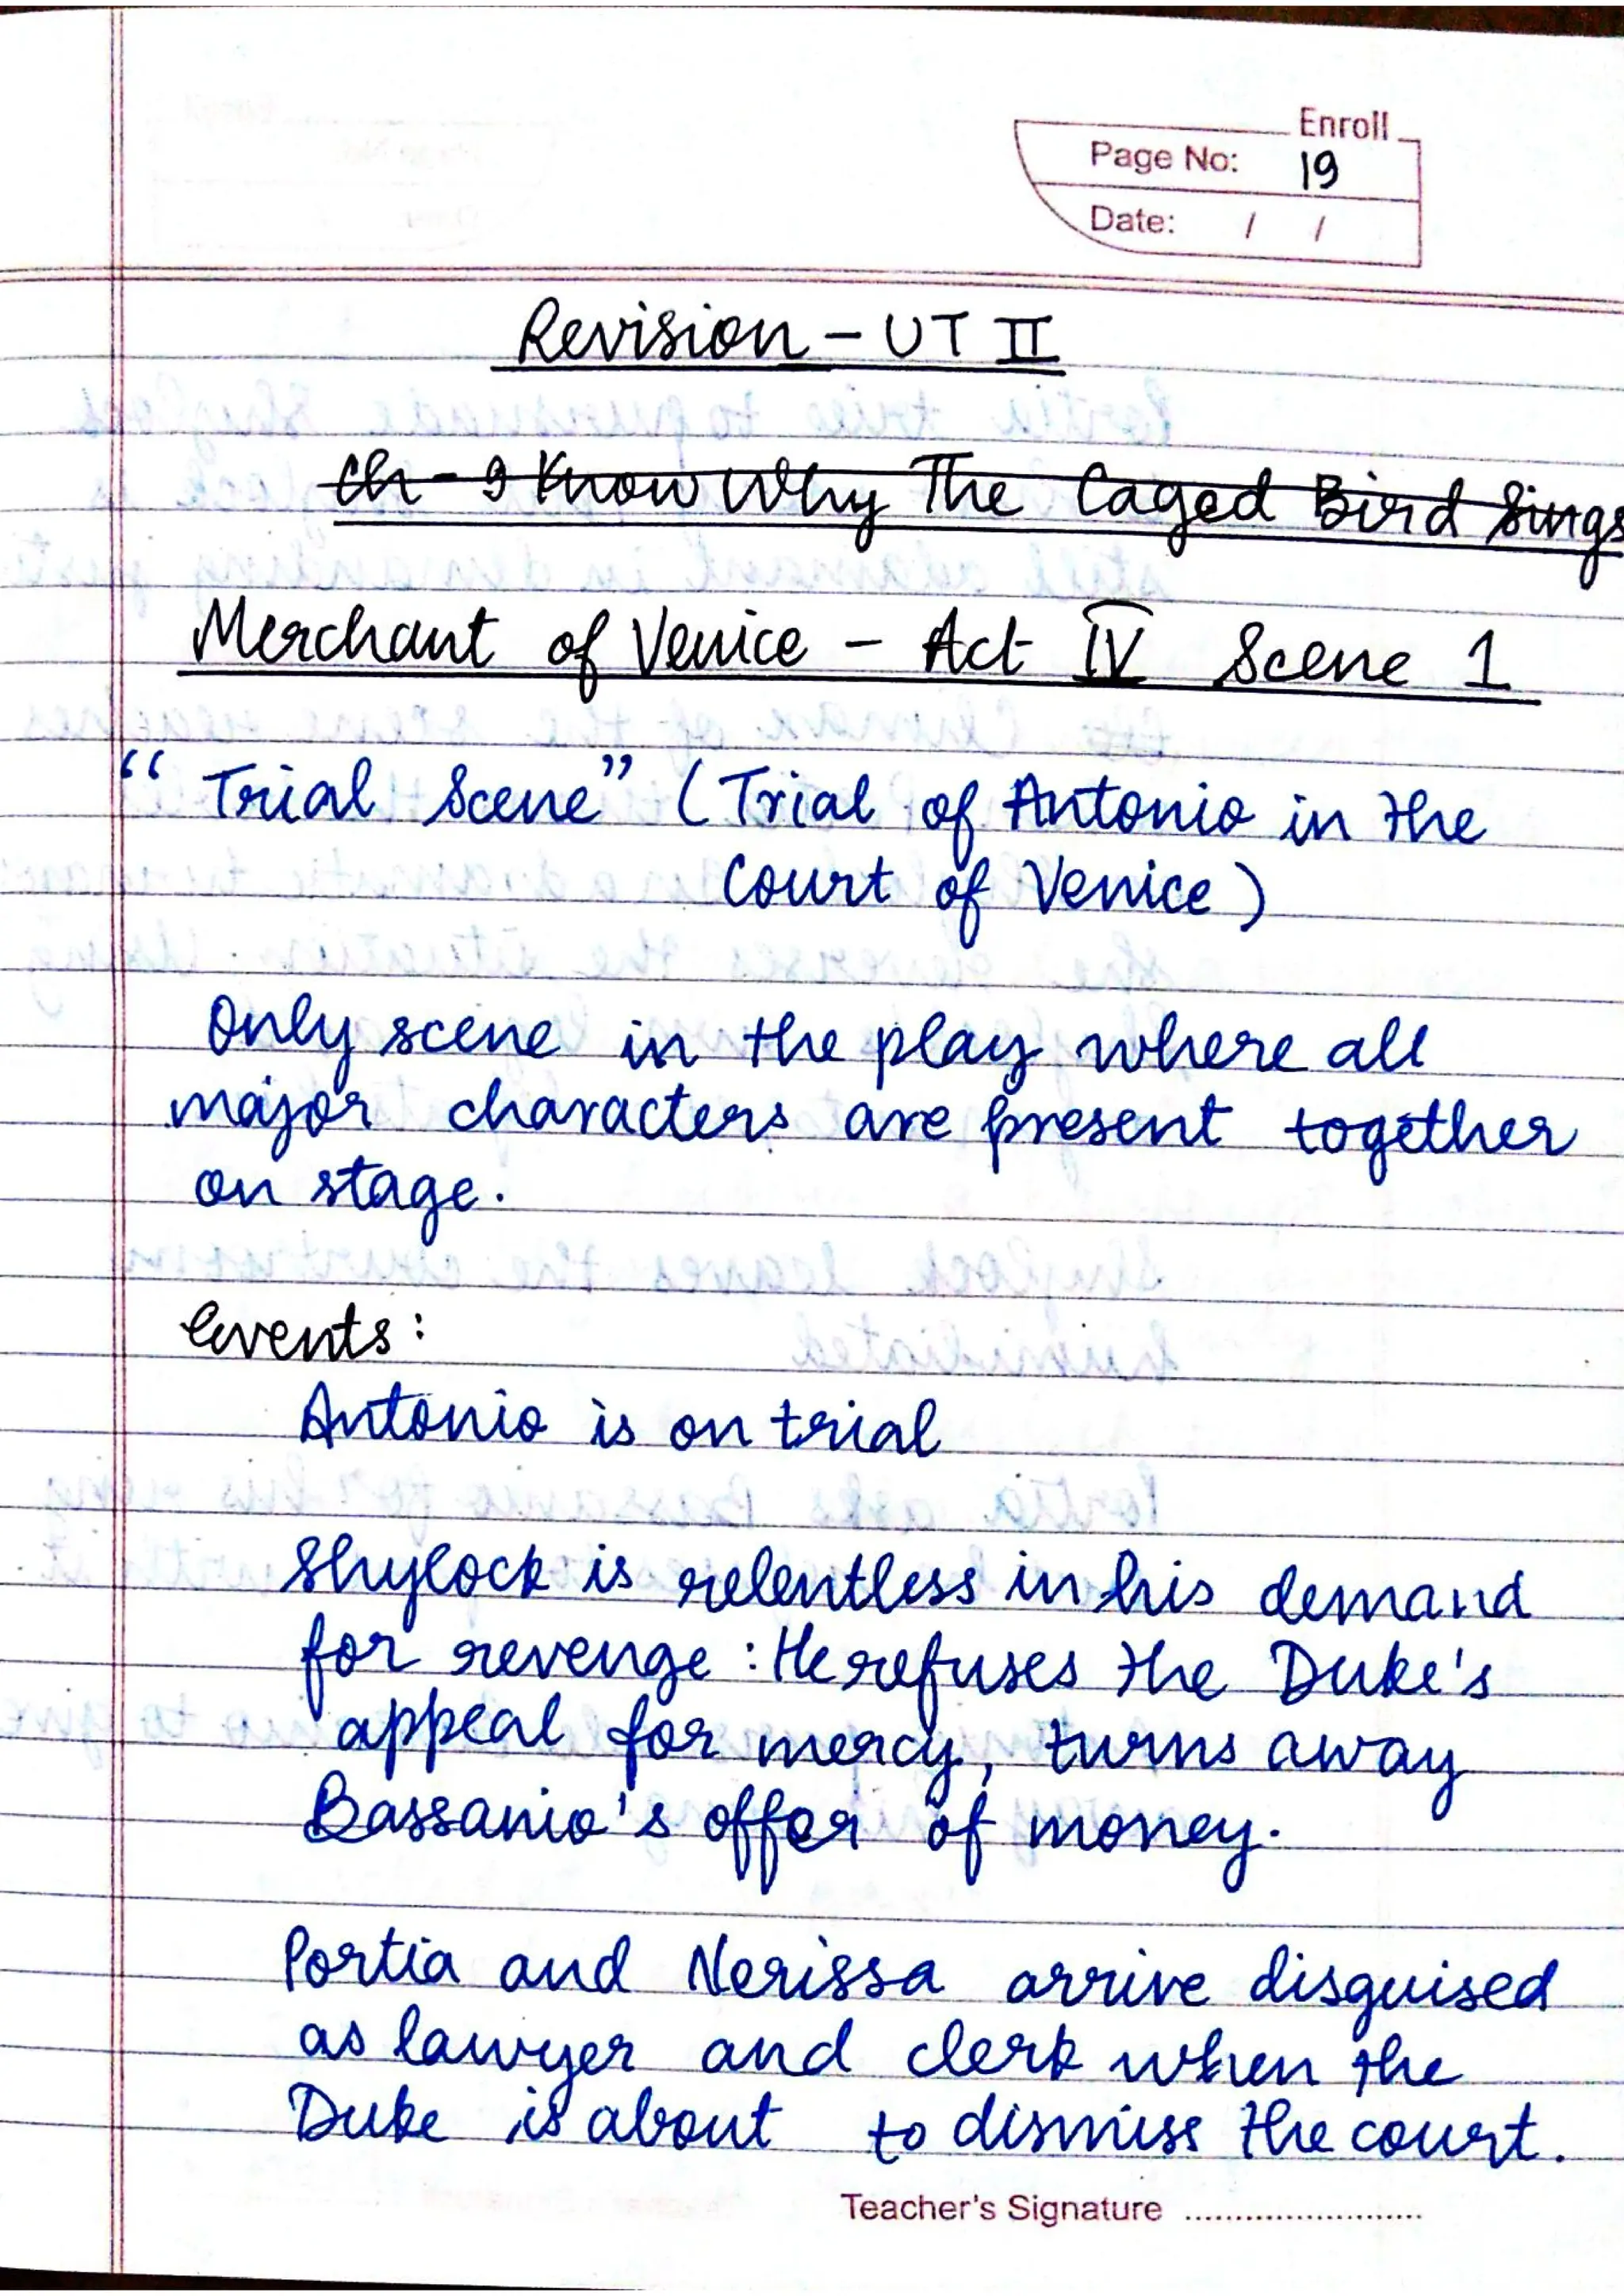 Enroll
Page No: 19
Date: / /
Revision - UT II
Ch - I Know Why The Caged Bird Sings
Merchant of Venice - Act IV Scene 1
"Trial Scene" (Trial of Antonio in the
Court of Venice)
Only scene in the play where all
major characters are present together
on stage.
Events:
Antonio is on trial
Shylock is relentless in his demand
for revenge : He refuses the Duke's
appeal for mercy, turns away
Bassanio's offer of money.
Portia and Nerissa arrive disguised
as lawyer and clerk when the
Duke is about to dismiss the court.
Teacher's Signature ........................